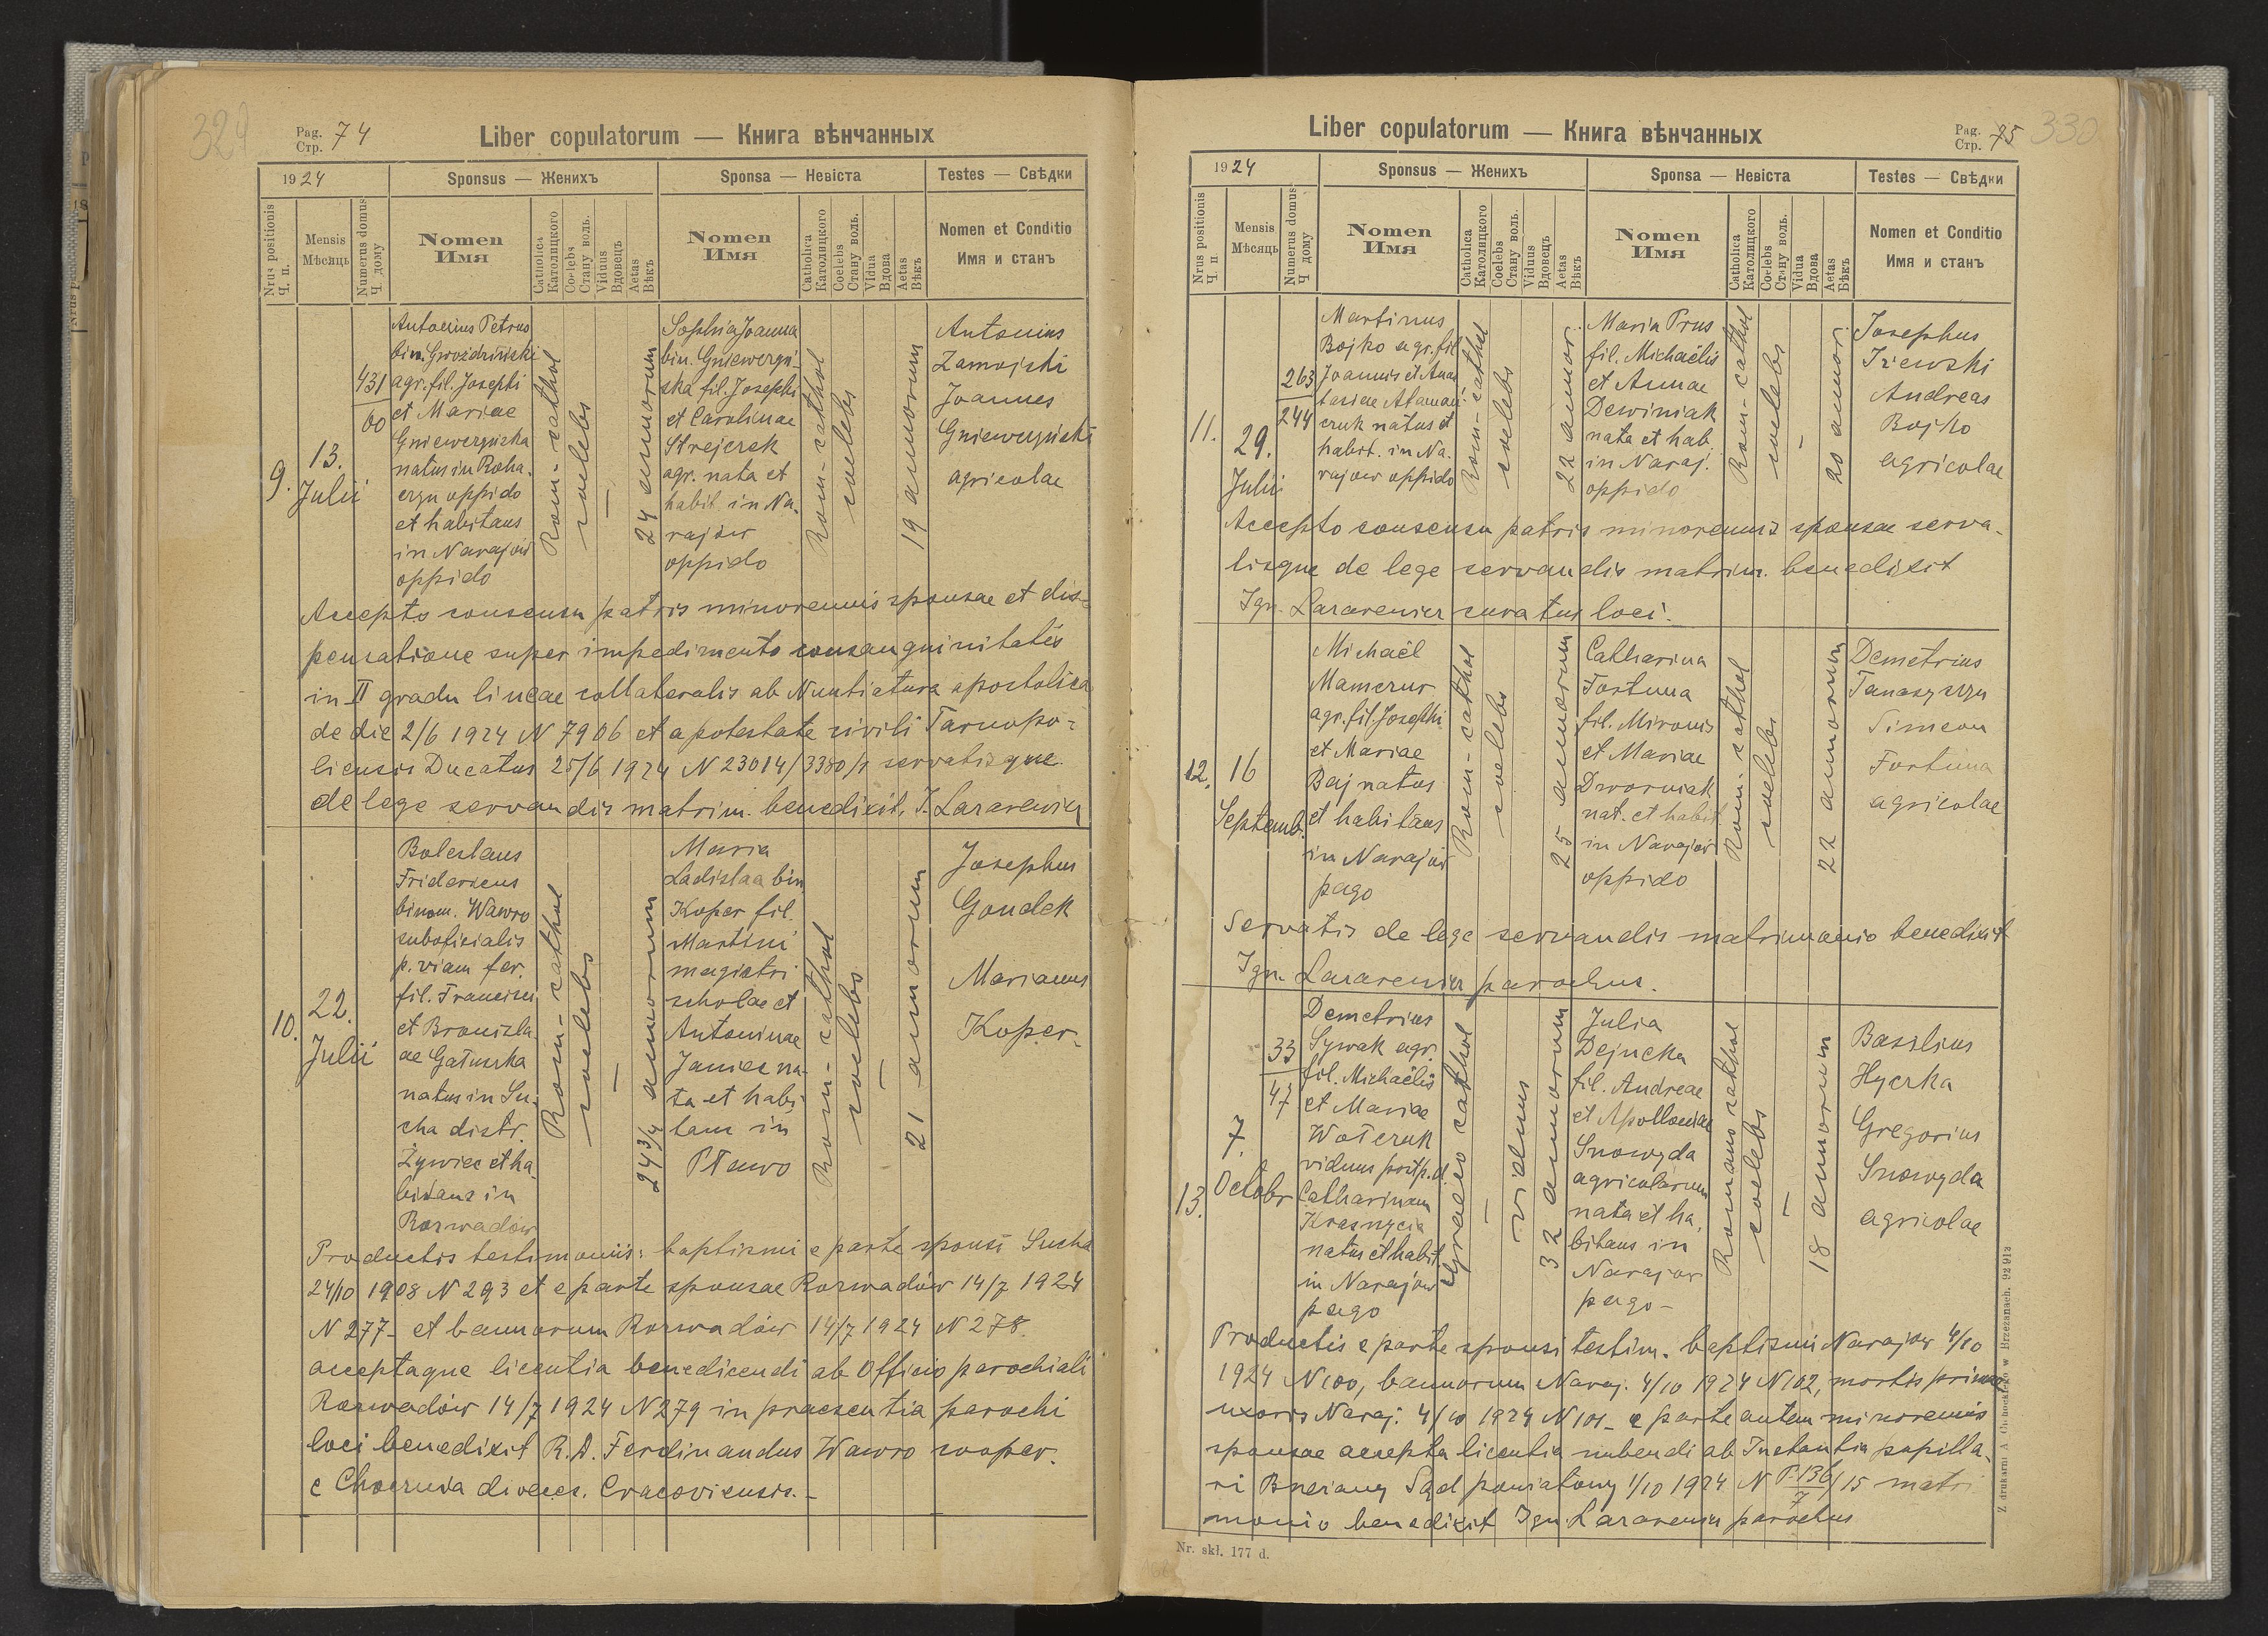 329
Pag. 74
Стр.
Liber copulatorum — Книга вѣнчанных
1924
Sponsus — Женихъ
Sponsa — Невіста
Testes — Свѣдки
Nrus positionis
Ч. п.
Mensis
Мѣсяць
Numerus domus
Ч. дому
Nomen
Имя
Catholica
Католицкого
Coelebs
Стану воль.
Viduus
Вдовець
Aetas
Вѣкъ
Nomen
Имя
Catholica
Католицкого
Coelebs
Стану воль.
Vidua
Вдова
Aetas
Вѣкъ
Nomen et Conditio
Имя и станъ
9.
13.
Julii
431
60
Antonius Petrus
bin. Gwoździński
agr. fil. Josephi
et Mariae
Gniewczyńska
natus in Roha-
czyn oppido
et habitans
in Narajow
oppido
Rom-cathol
coelebs
—
24 annorum
Sophia Joanna
bin. Gniewczyń-
ska fil. Josephi
et Carolinae
Strejczek
agr. nata et
habit. in Na-
rajow
oppido
Rom-cathol
coelebs
19 annorum
Antonius
Zamojski
Joannes
Gniewczyński
agricolae
Accepto consensu patris minorennis sponsae et dis-
pensatione super impedimento consanguinitatis
in II gradu lineae collateralis ab Nuntiatura apostolica
de die 2/6 1924 N 7906 et a potestate civili Tarnopo-
liensis Ducatus 25/6 1924 N 23014/3380/1 servatisque
de lege servandis matrim. benedixit. I. Lazarewicz
10.
22.
Julii
Boleslaus
Fridericus
binom. Wawro
suboficialis
p. viam fer.
fil. Francisci
et Bronisla-
ae Gałuszka
natus in Su-
cha distr.
Żywiec et ha-
bitans in
Rozwadów
Rom-cathol
coelebs
—
24 3/4 annorum
Maria
Ladislaa bin
Koper fil.
Martini
magistri
scholae et
Antoninae
Janiec na-
ta et habi-
tans in
Rom-cathol
coelebs
—
21 annorum
Josephus
Gondek
Marianus
Koper.
Productis testimoniis: baptismi e parte sponsi Sucha
24/10 1908 N 293 et e parte sponsae Rozwadów 14/7 1924
N 277 - et bannorum Rozwadów 14/7 1924 N 278.
acceptaque licentia benedicendi ab Officio parochiali
Rozwadów 14/7 1924 N 279 in praesentia parochi
loci benedixit R. D. Ferdinandus Wawro cooper.
e Chocznia dioeces. Cracoviensis. -
Liber copulatorum — Книга вѣнчанных
Pag. 75
Стр.
330
1924
Sponsus — Женихъ
Sponsa — Невіста
Testes — Свѣдки
Nrus positionis
Ч. п.
Mensis
Мѣсяць
Numerus domus
Ч дому
Nomen
Имя
Catholica
Католицкого
Coelebs
Стану воль.
Viduus
Вдовецъ
Aetas
Вѣкъ
Nomen
Имя
Catholica
Католицкого
Coelebs
Стану воль.
Vidua
Вдова
Aetas
Вѣкъ
Nomen et Conditio
Имя и станъ
11.
29.
Julii
263
244
Martinus
Bojko agr. fil
Joannis et Anas
tasiae Ataman-
czuk natus et
habit. in Na-
rajow oppido
Rom-cathol
coelebs
22 annor.
Maria Prus
fil. Michaëlis
et Annae
Dewiniak
nata et hab.
in Naraj.
oppido
Rom-cathol
coelebs
—
20 annor.
Josephus
Andreas
Bojko
agricolae
Accepto consensu patris minorennis sponsae serva-
tisque de lege servandis matrim. benedixit
Ign. Lazarewicz curatus loci.
12.
16
Septemb.
Michaël
Mamczur
agr. fil. Josephi
et Mariae
Baj natus
et habitans
in Narajów
pago
Rom-cathol
coelebs
25 annorum
Catharina
Fortuna
fil. Mironis
et Mariae
Dworniak
nat. et habit
in Narajów
oppido
Rom-cathol
coelebs
22 annorum
Demetrius
Tanasyczyn
Simeon
Fortuna
agricolae
Servatis de lege servandis matrimonio benedixit
Ign. Lazarewicz parochus.
13.
7.
Octobr
33
47
Demetrius
Sywak agr.
fil. Michaëlis
et Mariae
Wołczuk
viduus post p. d.
Catharinam
Krasnycia
natus et habit.
in Narajow
pago
Graeco cathol
—
viduus
32 annorum
Julia
Dejneka
fil. Andreae
et Apolloniae
Snowyda
agricolarum
nata et ha-
bitans in
Narajow
pago -
Romano cathol
coelebs
—
18 annorum
Basilius
Hyczka
Gregorius
Snowyda
agricolae
Productis e parte sponsi testim. baptismi Narajow 4/10
1924 N 100, bannorum Naraj. 4/10 1924 N 102, mortis primae
uxoris Naraj. 4/10 1924 N 101 - e parte autem minorennis
sponsae accepta licentia nubendi ab Instantia pupilla-
ri Brzeżany Sąd powiatowy 1/10 1924 N P. 136/15
7
matri
monio benedixit Ign. Lazarewicz parochus
Nr. skł. 177 d.